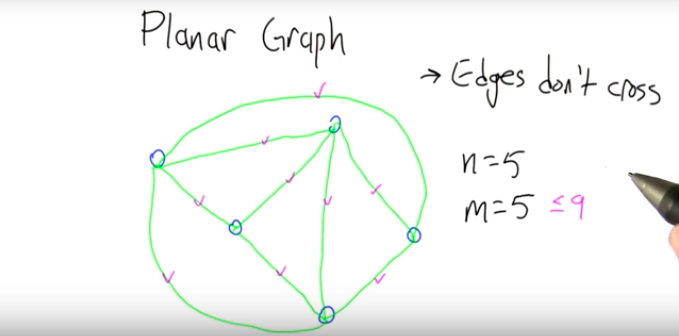 Planar Graph
→ Edges don't cross
n=5
m=5 ≤9